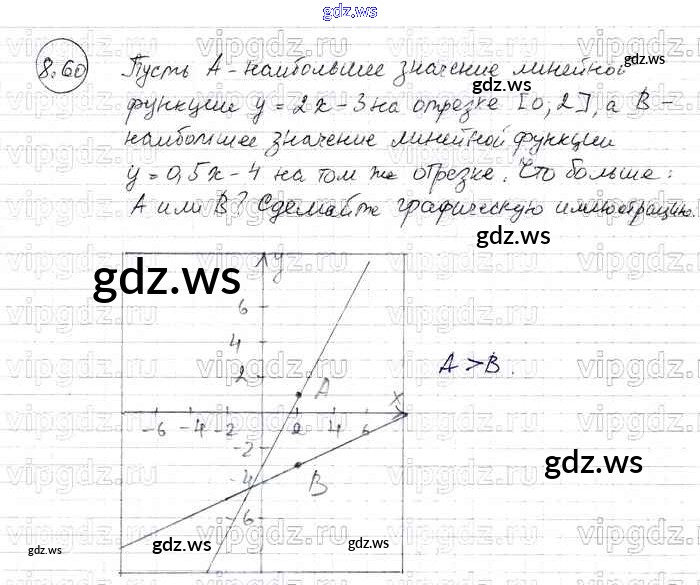 gdz.ws
8.60 Пусть A - наибольшее значение линейной
функции y = 2x - 3 на отрезке [0, 2], а B -
наибольшее значение линейной функции
y = 0,5x - 4 на том же отрезке. Что больше:
A или B? Сделайте графическую иллюстрацию.
y
6
4
2
A
A > B.
x
-6 -4 -2 2 4 6
-2
-4
B
-6
gdz.ws
gdz.ws
gdz.ws
gdz.ws
gdz.ws
gdz.ws
gdz.ws
vipgdz.ws